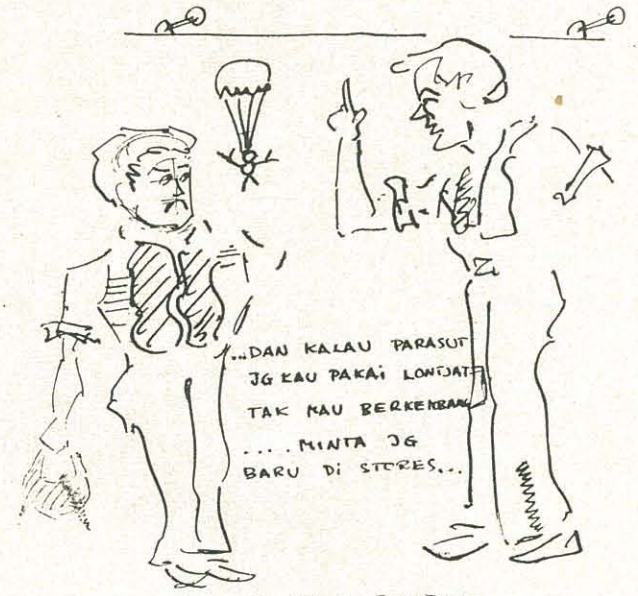 ...DAN KALAU PARASUT
JG KAU PAKAi LONTJAT
TAK MAU BERKEMBANG
..... MINTA JG
BARU Di STORES...